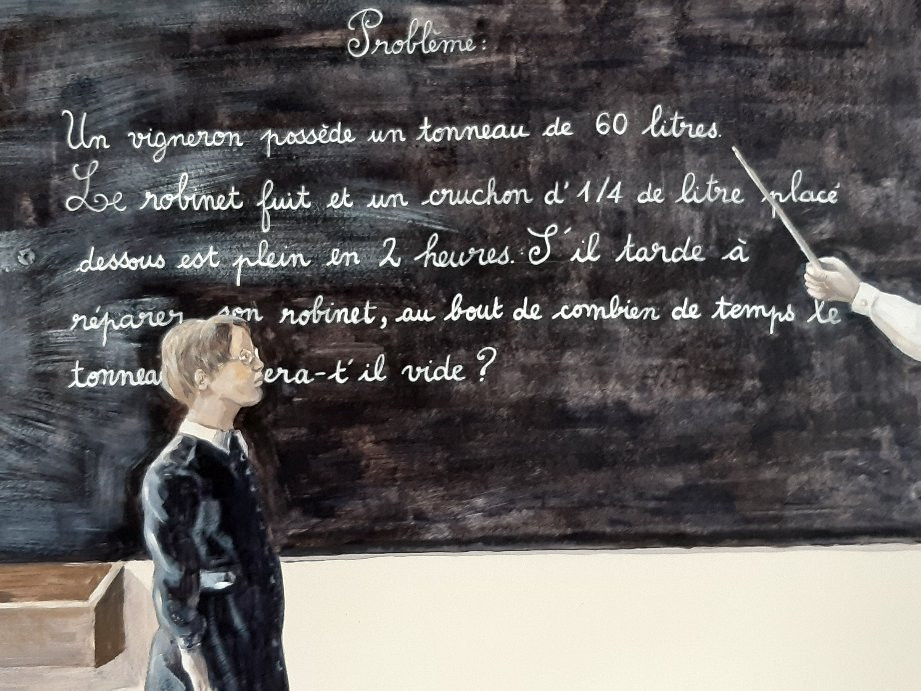 Problème:
Un vigneron possède un tonneau de 60 litres.
Le robinet fuit et un cruchon d'1/4 de litre placé
dessous est plein en 2 heures. S'il tarde à
réparer son robinet, au bout de combien de temps le
tonnea era-t'il vide ?